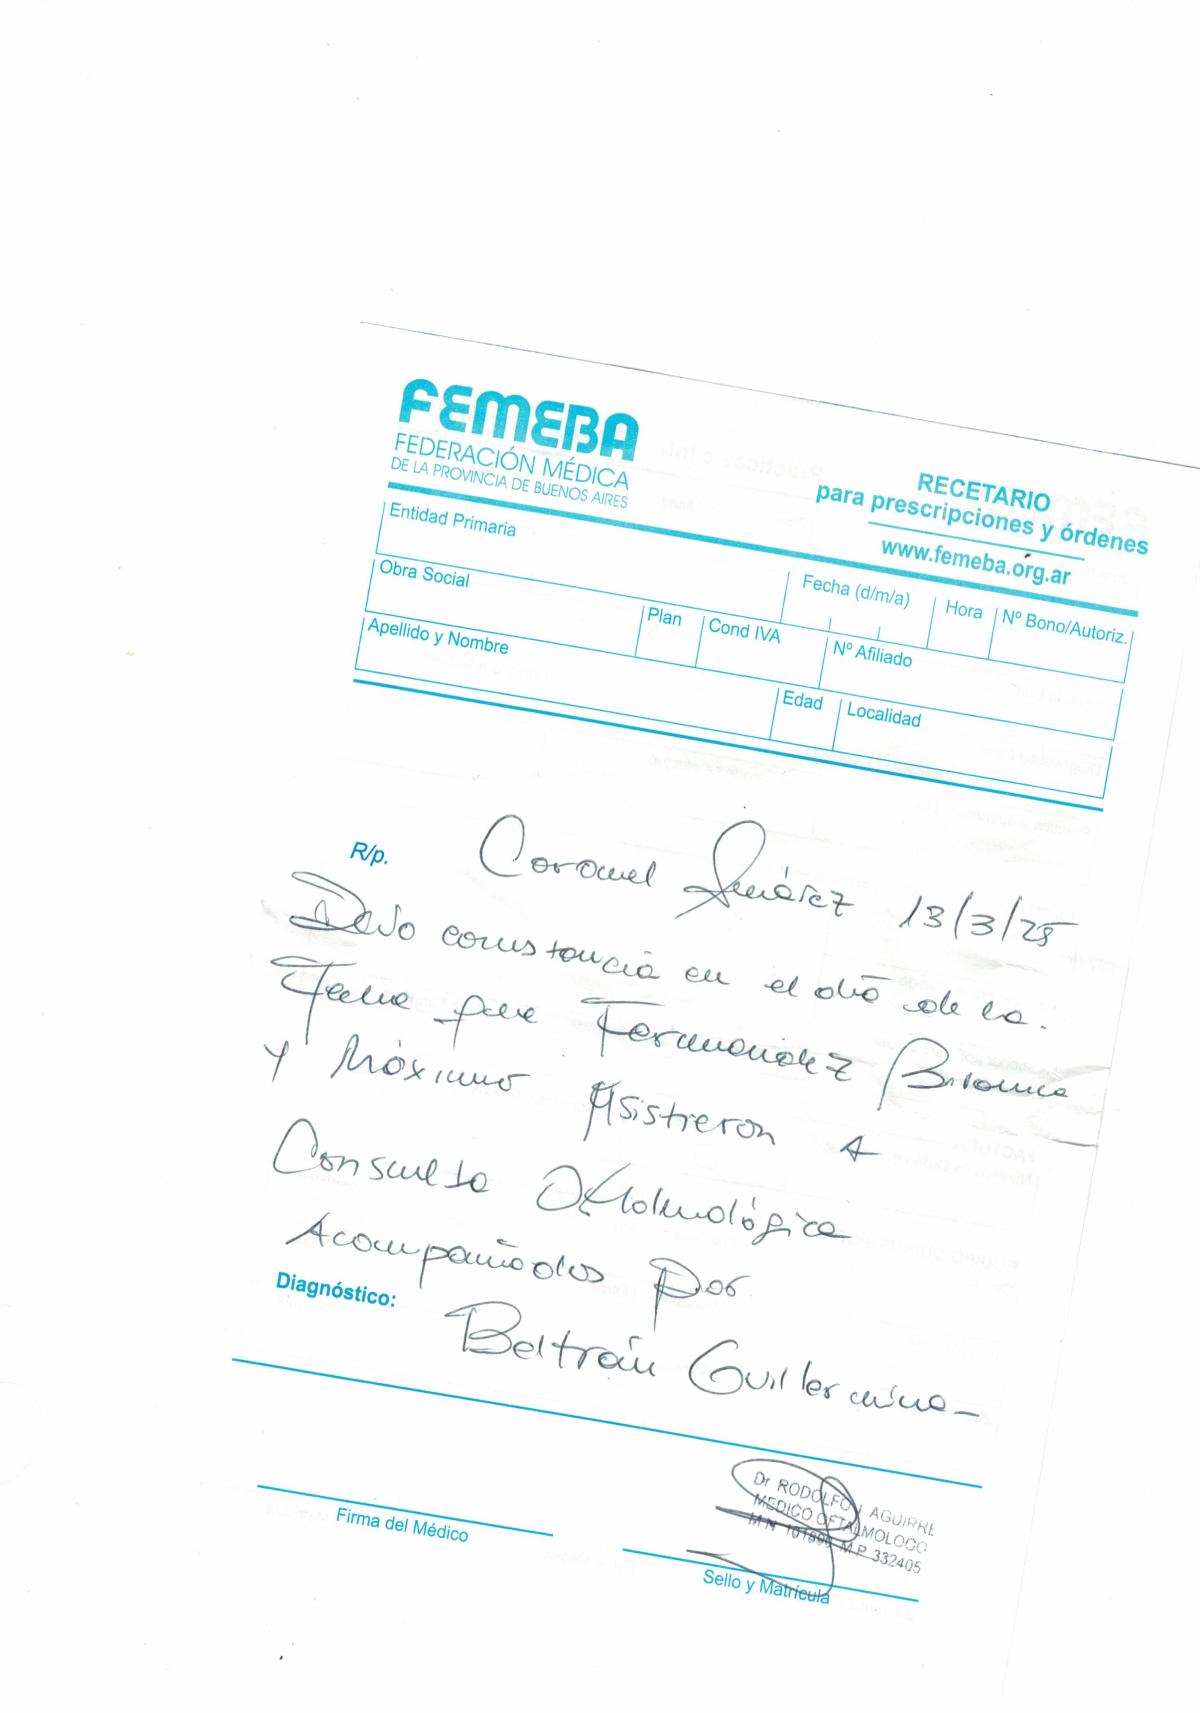 FEMEBA
FEDERACIÓN MÉDICA
DE LA PROVINCIA DE BUENOS AIRES
RECETARIO
para prescripciones y órdenes
www.femeba.org.ar
Entidad Primaria
Fecha (d/m/a)
Hora
Nº Bono/Autoriz.
Obra Social
Plan
Cond IVA
Nº Afiliado
Apellido y Nombre
Edad
Localidad
R/p.
Coronel Suárez 13/3/25
Dejo constancia en el día de la
fecha que Fernandez Brianna
y Máximo Asistieron A
Consulta Oftalmológica
Acompañados por
Diagnóstico:
Beltrán Guillermina-
Dr RODOLFO J AGUIRRE
MEDICO OFTALMOLOGO
M N M P 332405
Firma del Médico
Sello y Matrícula